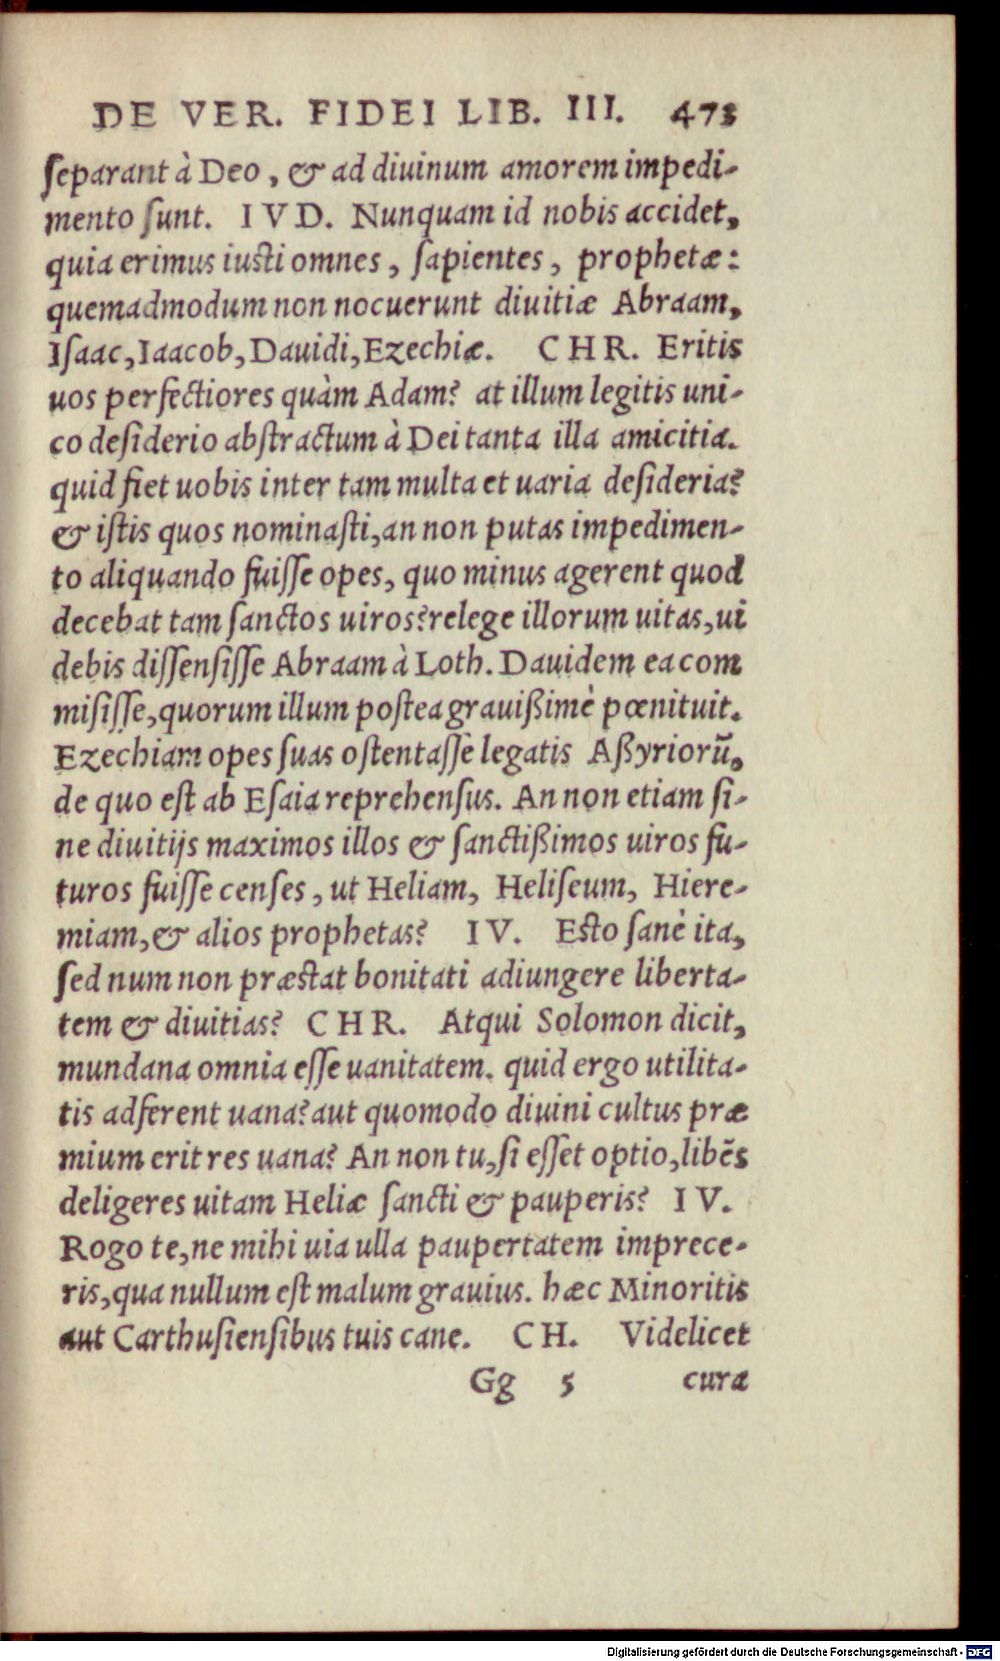 DE VER. FIDEI LIB. III. 473
ſeparant à Deo, & ad diuinum amorem impedi-
mento ſunt. IVD. Nunquam id nobis accidet,
quia erimus iuſti omnes, ſapientes, prophetæ:
quemadmodum non nocuerunt diuitiæ Abraam,
Iſaac, Iaacob, Dauidi, Ezechiæ. CHR. Eritis
uos perfectiores quàm Adam? at illum legitis uni-
co deſiderio abſtractum à Dei tanta illa amicitia.
quid fiet uobis inter tam multa et uaria deſideria?
& iſtis quos nominaſti, an non putas impedimen-
to aliquando fuiſſe opes, quo minus agerent quod
decebat tam ſanctos uiros? relege illorum uitas, ui
debis diſſenſiſſe Abraam à Loth. Dauidem ea com
miſiſſe, quorum illum poſtea grauißimè pœnituit.
Ezechiam opes ſuas oſtentaſſe legatis Aßyriorũ,
de quo eſt ab Eſaia reprehenſus. An non etiam ſi-
ne diuitijs maximos illos & ſanctißimos uiros fu-
turos fuiſſe cenſes, ut Heliam, Heliſeum, Hiere-
miam, & alios prophetas? IV. Eſto ſanè ita,
ſed num non præſtat bonitati adiungere liberta-
tem & diuitias? CHR. Atqui Solomon dicit,
mundana omnia eſſe uanitatem. quid ergo utilita-
tis adferent uana? aut quomodo diuini cultus præ
mium erit res uana? An non tu, ſi eſſet optio, libẽs
deligeres uitam Heliæ ſancti & pauperis? IV.
Rogo te, ne mihi uia ulla paupertatem imprece-
ris, qua nullum eſt malum grauius. hæc Minoritis
aut Carthuſienſibus tuis cane. CH. Videlicet
Gg 5 curæ
Digitalisierung gefördert durch die Deutsche Forschungsgemeinschaft - DFG